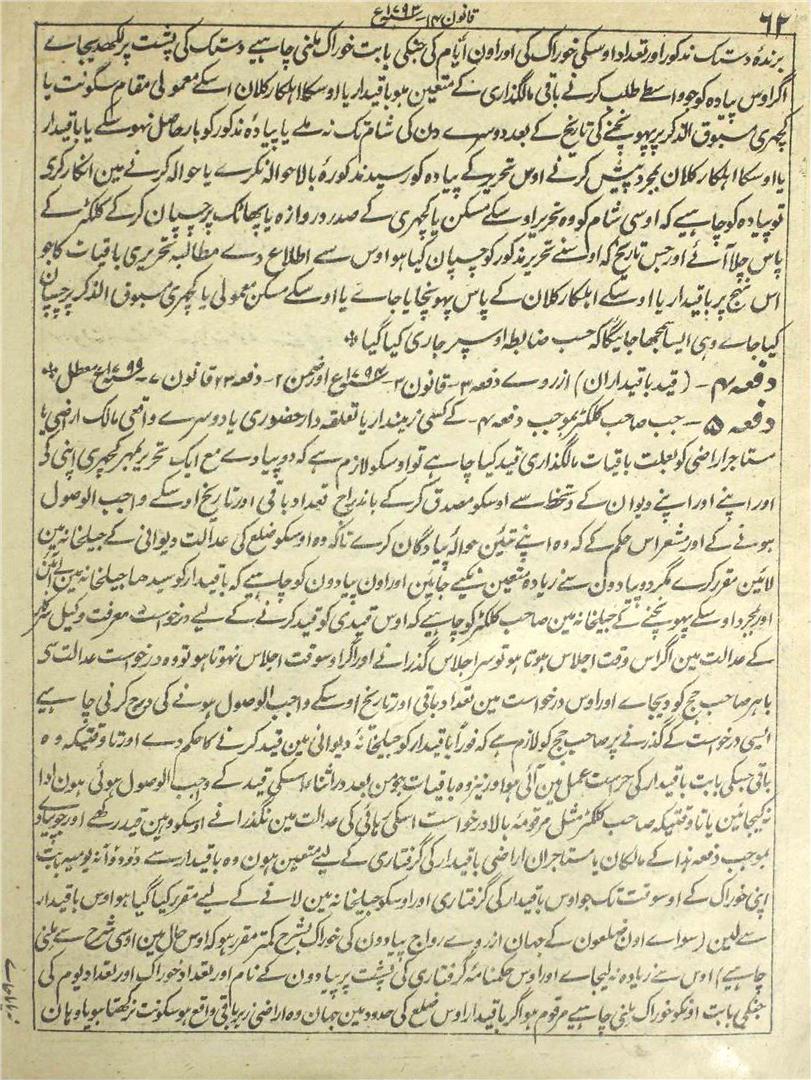 ۶۲
قانون ۱۴ - ۱۷۹۳ع
برندۂ دستک مذکور اور تعداد اوسکی خوراک کی اور اون ایام کی جنکی بابت خوراک ملنی چاہیے دستک کی پشت پر لکھدیجاے
اگر اوس پیادہ کو جو واسطے طلب کرنے باقی مالگذاری کے متعین ہو باقیدار یا اوسکا اہلکار کلان اسکے معمولی مقام سکونت یا
کچہری مسبوق الذکر پر پہونچنے کی تاریخ کے بعد دوسرے دن کی شام تک نہ ملے یا پیادۂ مذکور کو بار حاصل نہوسکے یا باقیدار
یا اوسکا اہلکار کلان بمجرد پیش کرنے اوس تحریر کے پیادہ کو رسید مذکورۂ بالا حوالہ نکرے یا حوالہ کرنے مین انکار کرے
تو پیادہ کو چاہیے کہ اوسی شام کو وہ تحریر اوسکے مسکن یا کچہری کے صدر دروازہ یا پھاٹک پر چسپان کرکے کلکٹر کے
پاس چلا آئے اور جس تاریخ کہ اوسنے تحریر مذکور کو چسپان کیا ہو اوس سے اطلاع دے مطالبہ تحریری باقیات کا جو
اس نہج پر باقیدار یا اوسکے اہلکار کلان کے پاس پہونچایا جاے یا اوسکے مسکن معمولی یا کچہری مسبوق الذکر پر چسپان
کیا جاے وہی ایسا سمجھا جائیگا کہ حسب ضابطہ اوسپر جاری کیا گیا *
دفعہ ۴ - (قید باقیداران) ازروے دفعہ ۳ - قانون ۳ - ۱۷۹۴ع اور ضمن ۲ - دفعہ ۲۳ قانون ۷ - ۱۷۹۹ع معطل *
دفعہ ۵ - جب صاحب کلکٹر بموجب دفعہ ۴ - کے کسی زمیندار یا تعلقہ دار حضوری یا دوسرے واقعی مالک اراضی یا
مستاجر اراضی کو بعلت باقیات مالگذاری قید کیا چاہے تو اوسکو لازم ہے کہ دو پیادے مع ایک تحریر بمہر کچہری اپنی کی
اور اپنے اور اپنے دیوان کے دستخط سے اوسکو مصدق کرکے باندراج تعداد باقی اور تاریخ اوسکے واجب الوصول
ہونے کے اور مشعر اس حکم کے کہ وہ اپنے تئین حوالۂ پیادگان کرے تاکہ وہ اوسکو ضلع کی عدالت دیوانی کے جیلخانہ مین
لائین مقرر کرے مگر دو پیادون سے زیادہ متعین نکیے جائین اور اون پیادون کو چاہیے کہ باقیدار کو سیدھا جیلخانہ مین لے آئین
اور بمجرد اوسکے پہونچنے کے جیلخانہ مین صاحب کلکٹر کو چاہیے کہ اوس قیدی کو قید کرنے کے لیے درخواست معرفت وکیل سرکار
کے عدالت مین اگر اس وقت اجلاس ہوتا ہو تو سر اجلاس گذرانے اور اگر اوسوقت اجلاس نہوتا ہو تو وہ درخواست عدالت سے
باہر صاحب جج کو دیجاے اور اوس درخواست مین تعداد باقی اور تاریخ اوسکے واجب الوصول ہونے کی درج کرنی چاہیے
ایسی درخواست کے گذرنے پر صاحب جج کو لازم ہے کہ فوراً باقیدار کو جیلخانۂ دیوانی مین قید کرنے کا حکم دے اور تا وقتیکہ وہ
باقی جسکی بابت باقیدار کی حراست عمل مین آئی ہو اور نیز وہ باقیات جو من بعد در اثناء اسکی قید کے واجب الوصول ہوئی ہون ادا
نہ کیجائین یا تا وقتیکہ صاحب کلکٹر مثل مرقومۂ بالا درخواست اسکی رہائی کی عدالت مین نگذرانے اوسکو وہین قید رکھے اور جو پیادے
بموجب دفعہ ہذا کے مالکان یا مستاجران اراضی باقیدار کی گرفتاری کے لیے متعین ہون وہ باقیدار سے دو دو آنہ یومیہ بابت
اپنی خوراک کے اوسوقت تک جو اوس باقیدار کی گرفتاری اور اوسکو جیلخانہ مین لانے کے لیے مقرر کیا گیا ہو اوس باقیدار
سے لین (سواے اون ضلعون کے جہان ازروے رواج پیادون کی خوراک بشرح کمتر مقرر ہو کہ اوس حال مین اوسی شرح سے ملنی
چاہیے) اوس سے زیادہ نہ لیجاے اور اوس حکمنامۂ گرفتاری کی پشت پر پیادون کے نام اور تعداد خوراک اور تعداد یوم کی
جنکی بابت اونکو خوراک ملنی چاہیے مرقوم ہو اگر باقیدار اوس ضلع کی حدود مین جہان وہ اراضی زیر باقی واقع ہو سکونت نرکھتا ہو یا وہان